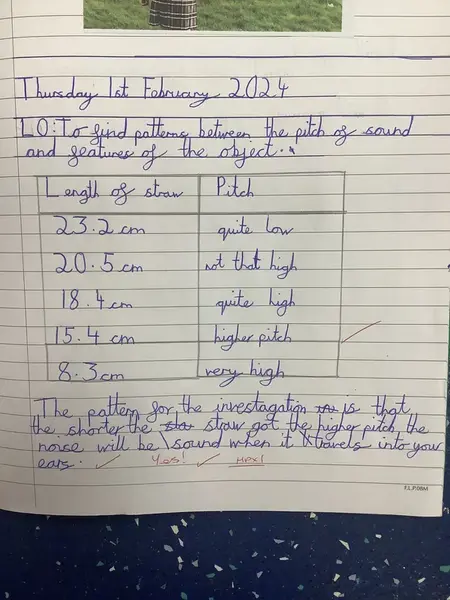 Thursday 1st February 2024
LO: To find patterns between the pitch of sound
and features of the object.
Length of straw Pitch
23.2 cm quite low
20.5 cm not that high
18.4 cm quite high
15.4 cm higher pitch
8.3 cm very high
The pattern for the investagation is that
the shorter the straw got the higher pitch the
noise will be \ sound when it travels into your
ears.
Yes! HPX1